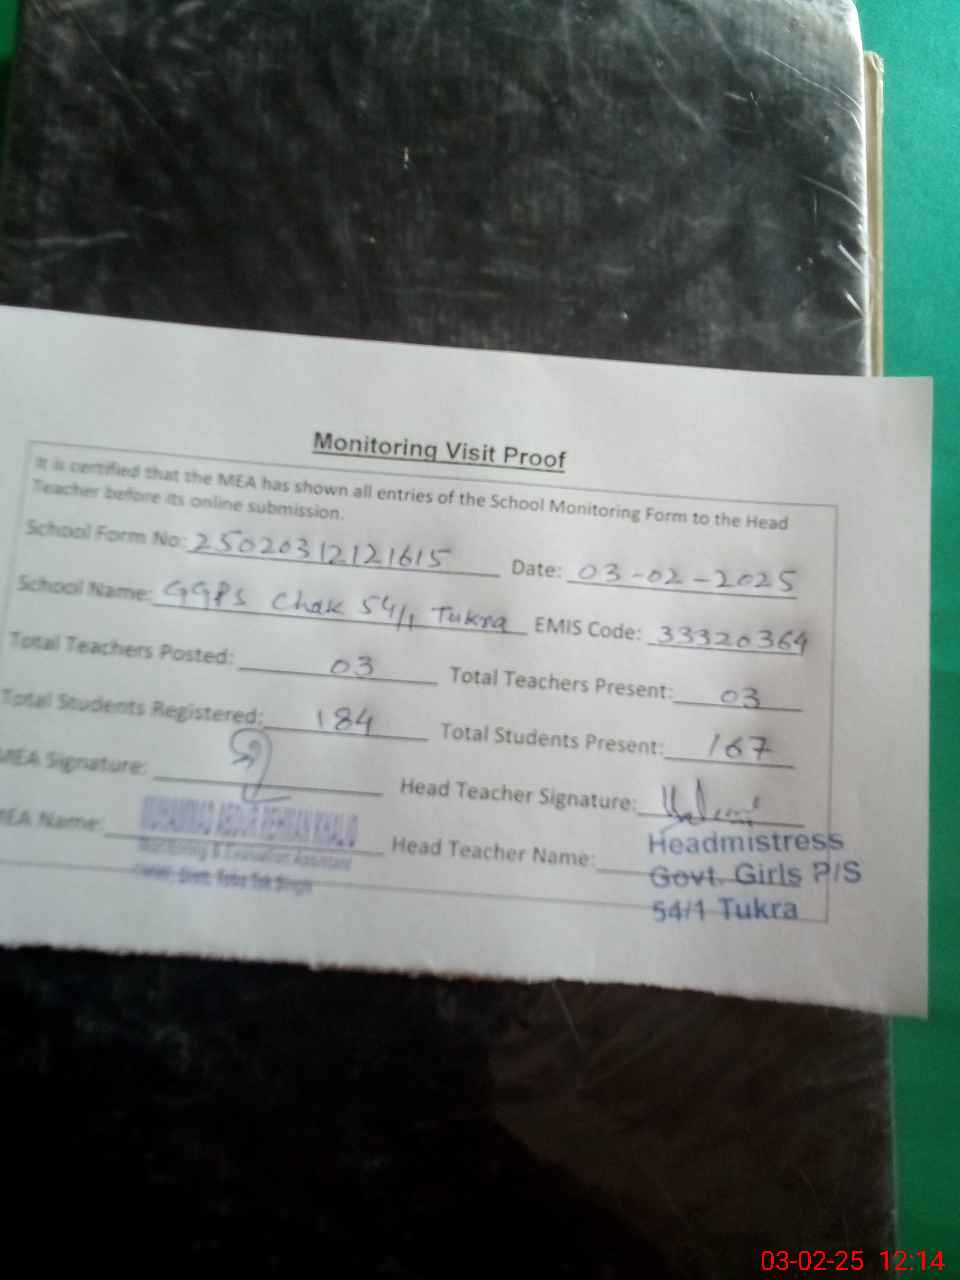 Monitoring Visit Proof
It is certified that the MEA has shown all entries of the School Monitoring Form to the Head
Teacher before its online submission.
School Form No: 25020312121615 Date: 03-02-2025
School Name: GGPS Chak 54/1 Tukra EMIS Code: 33320364
Total Teachers Posted: 03 Total Teachers Present: 03
Total Students Registered: 184 Total Students Present: 167
MEA Signature: Head Teacher Signature:
MEA Name: MUHAMMAD ABDUR REHMAN KHALID Head Teacher Name: Headmistress
Monitoring & Evaluation Assistant Govt. Girls P/S
Distt. Toba Tek Singh 54/1 Tukra
03-02-25 12:14